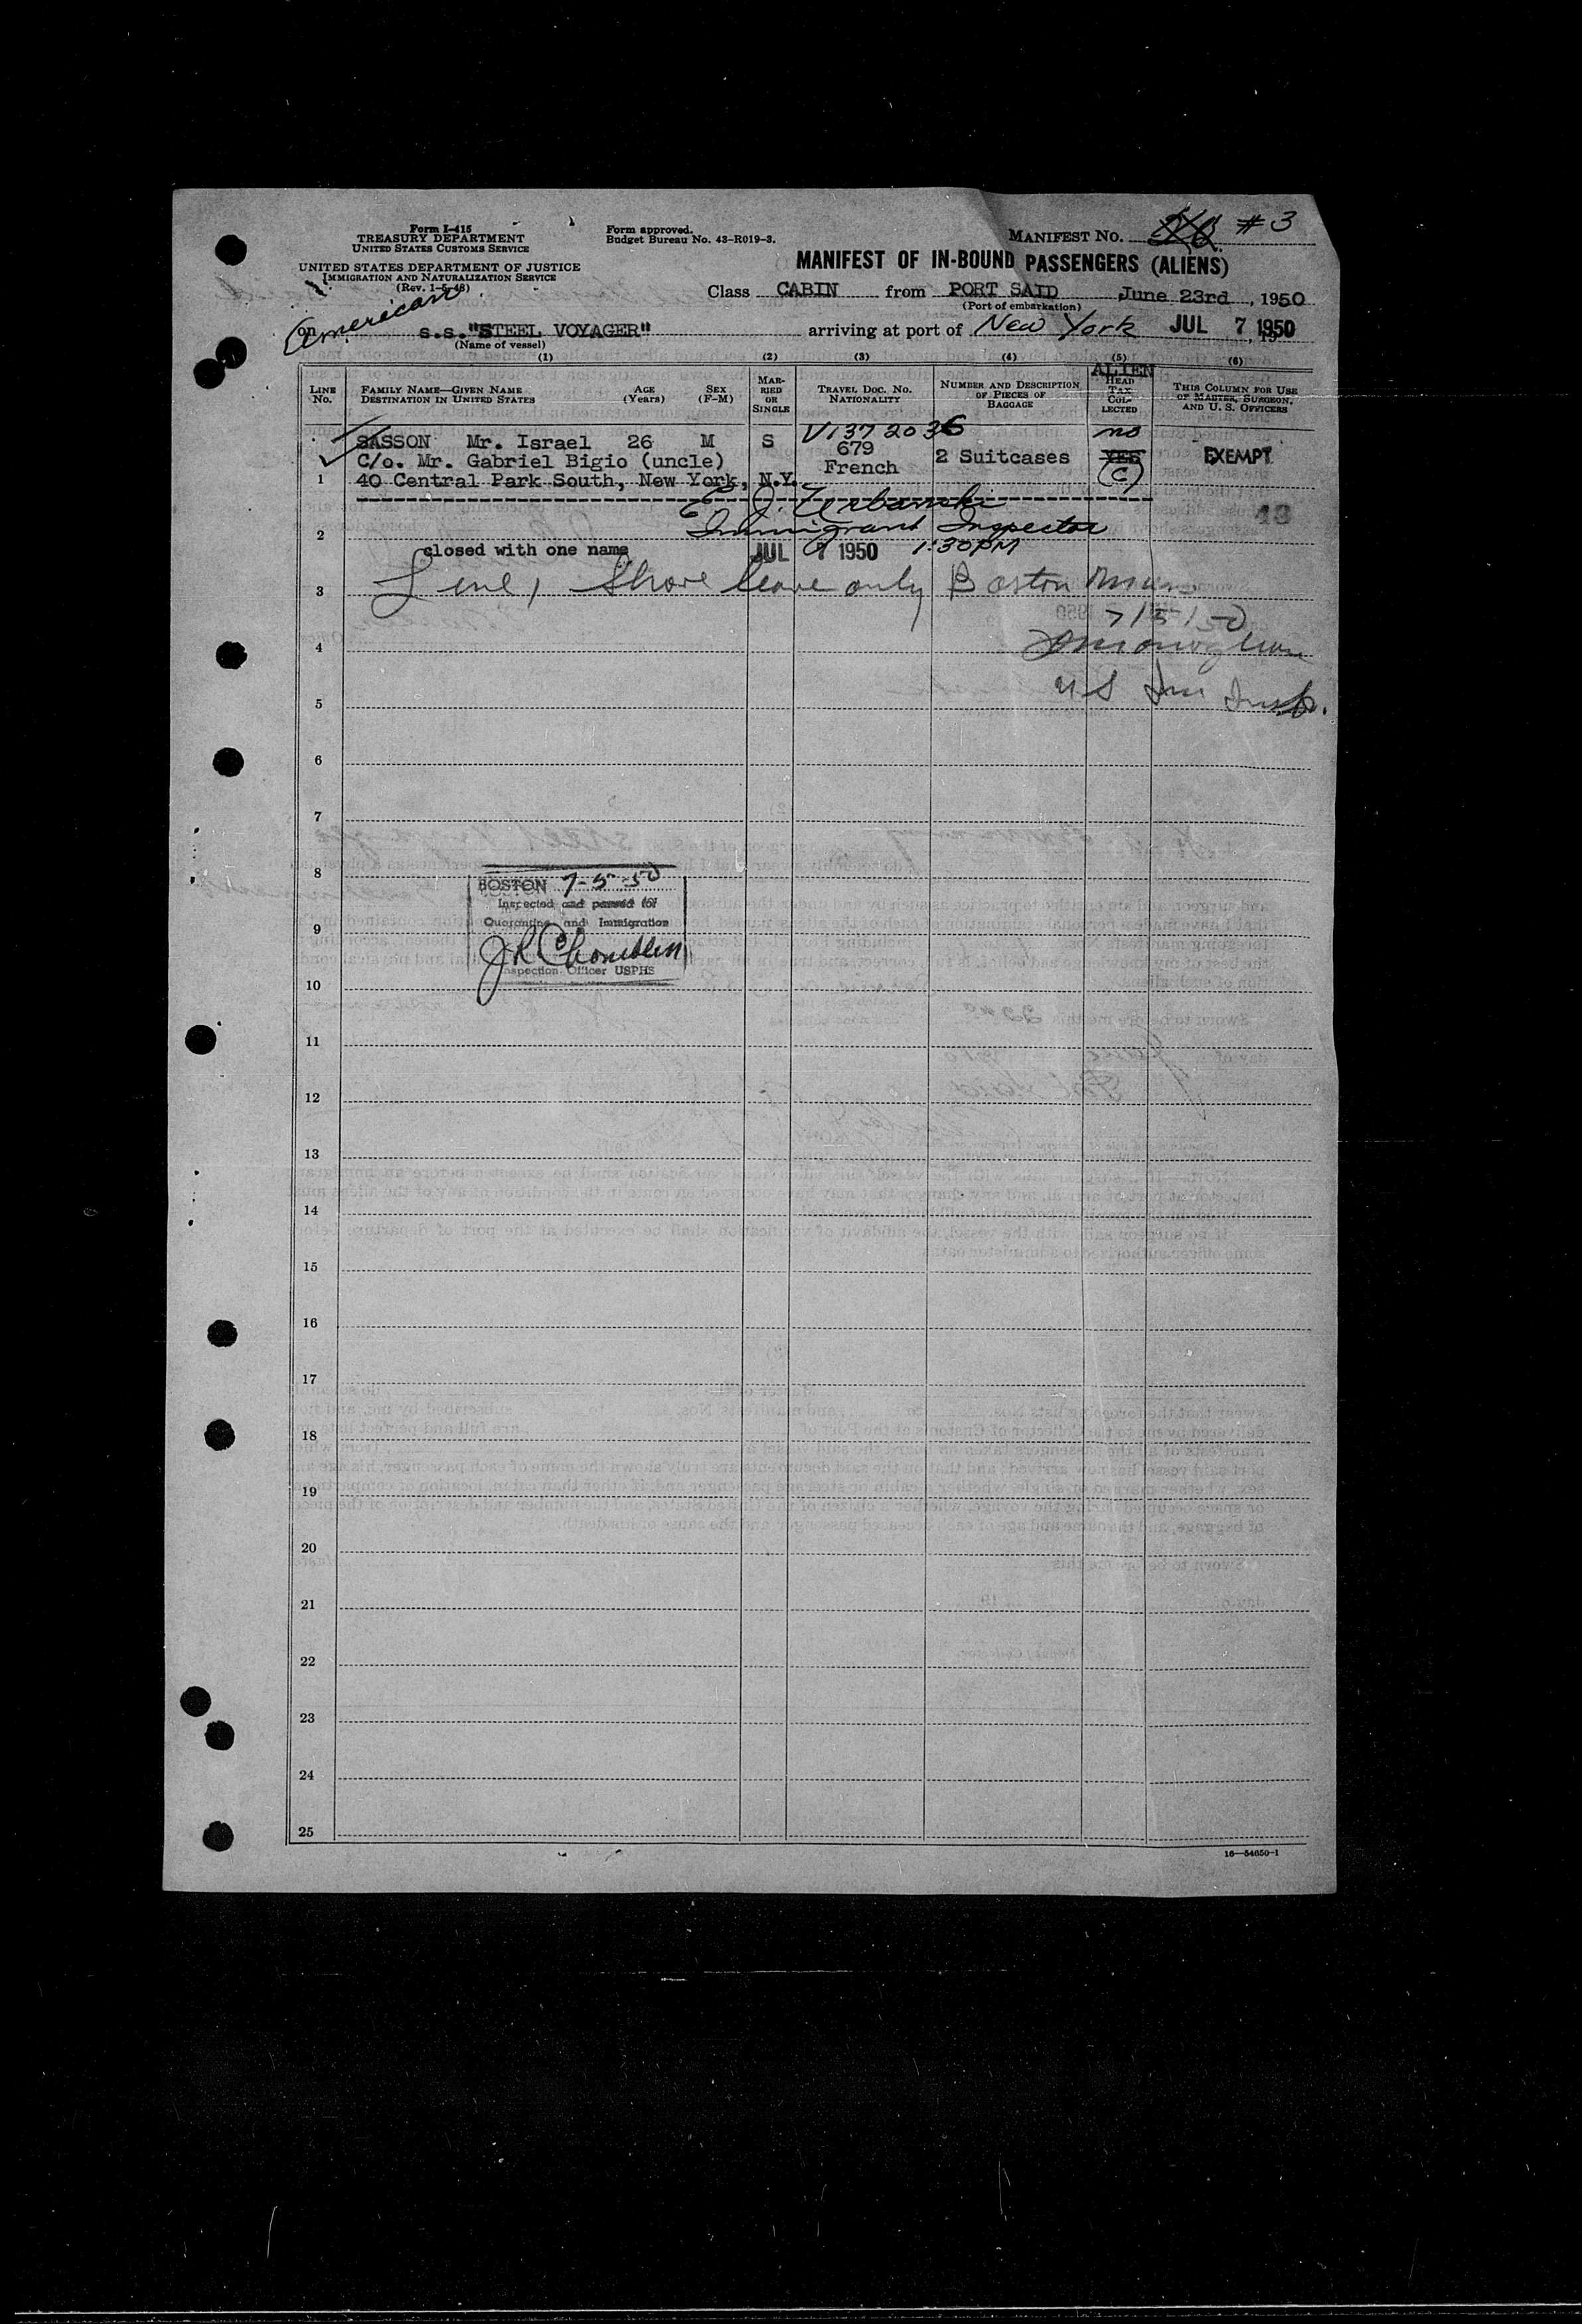 Form I-415
TREASURY DEPARTMENT
UNITED STATES CUSTOMS SERVICE
UNITED STATES DEPARTMENT OF JUSTICE
IMMIGRATION AND NATURALIZATION SERVICE
(Rev. 1-5-48)
Form approved.
Budget Bureau No. 43-R019-3.
MANIFEST NO. #3
MANIFEST OF IN-BOUND PASSENGERS (ALIENS)
Class CABIN from PORT SAID June 23rd, 1950
(Port of embarkation)
American
on s.s. "STEEL VOYAGER" arriving at port of New York JUL 7 1950
(Name of vessel)
(1) (2) (3) (4) (5) (6)
LINE No.
FAMILY NAME—GIVEN NAME
DESTINATION IN UNITED STATES
AGE (Years)
SEX (F-M)
MARRIED OR SINGLE
TRAVEL DOC. NO.
NATIONALITY
NUMBER AND DESCRIPTION OF PIECES OF BAGGAGE
ALIEN
HEAD TAX COLLECTED
THIS COLUMN FOR USE OF MASTER, SURGEON, AND U. S. OFFICERS
V1372036 no
SASSON Mr. Israel 26 M S 679 2 Suitcases YES EXEMPT
C/o. Mr. Gabriel Bigio (uncle) French (C)
1 40 Central Park South, New York, N.Y.
E. J. Urbanski
43
2 Immigrant Inspector
closed with one name JUL 7 1950 1:30PM
3 Line 1 Shore leave only Boston Mass
7/5/50
4
US Imm Insp.
5
6
7
8
BOSTON 7-5-50
Inspected and passed for
9 Quarantine and Immigration
Inspection Officer USPHS
10
11
12
13
14
15
16
17
18
19
20
21
22
23
24
25
16—54650-1